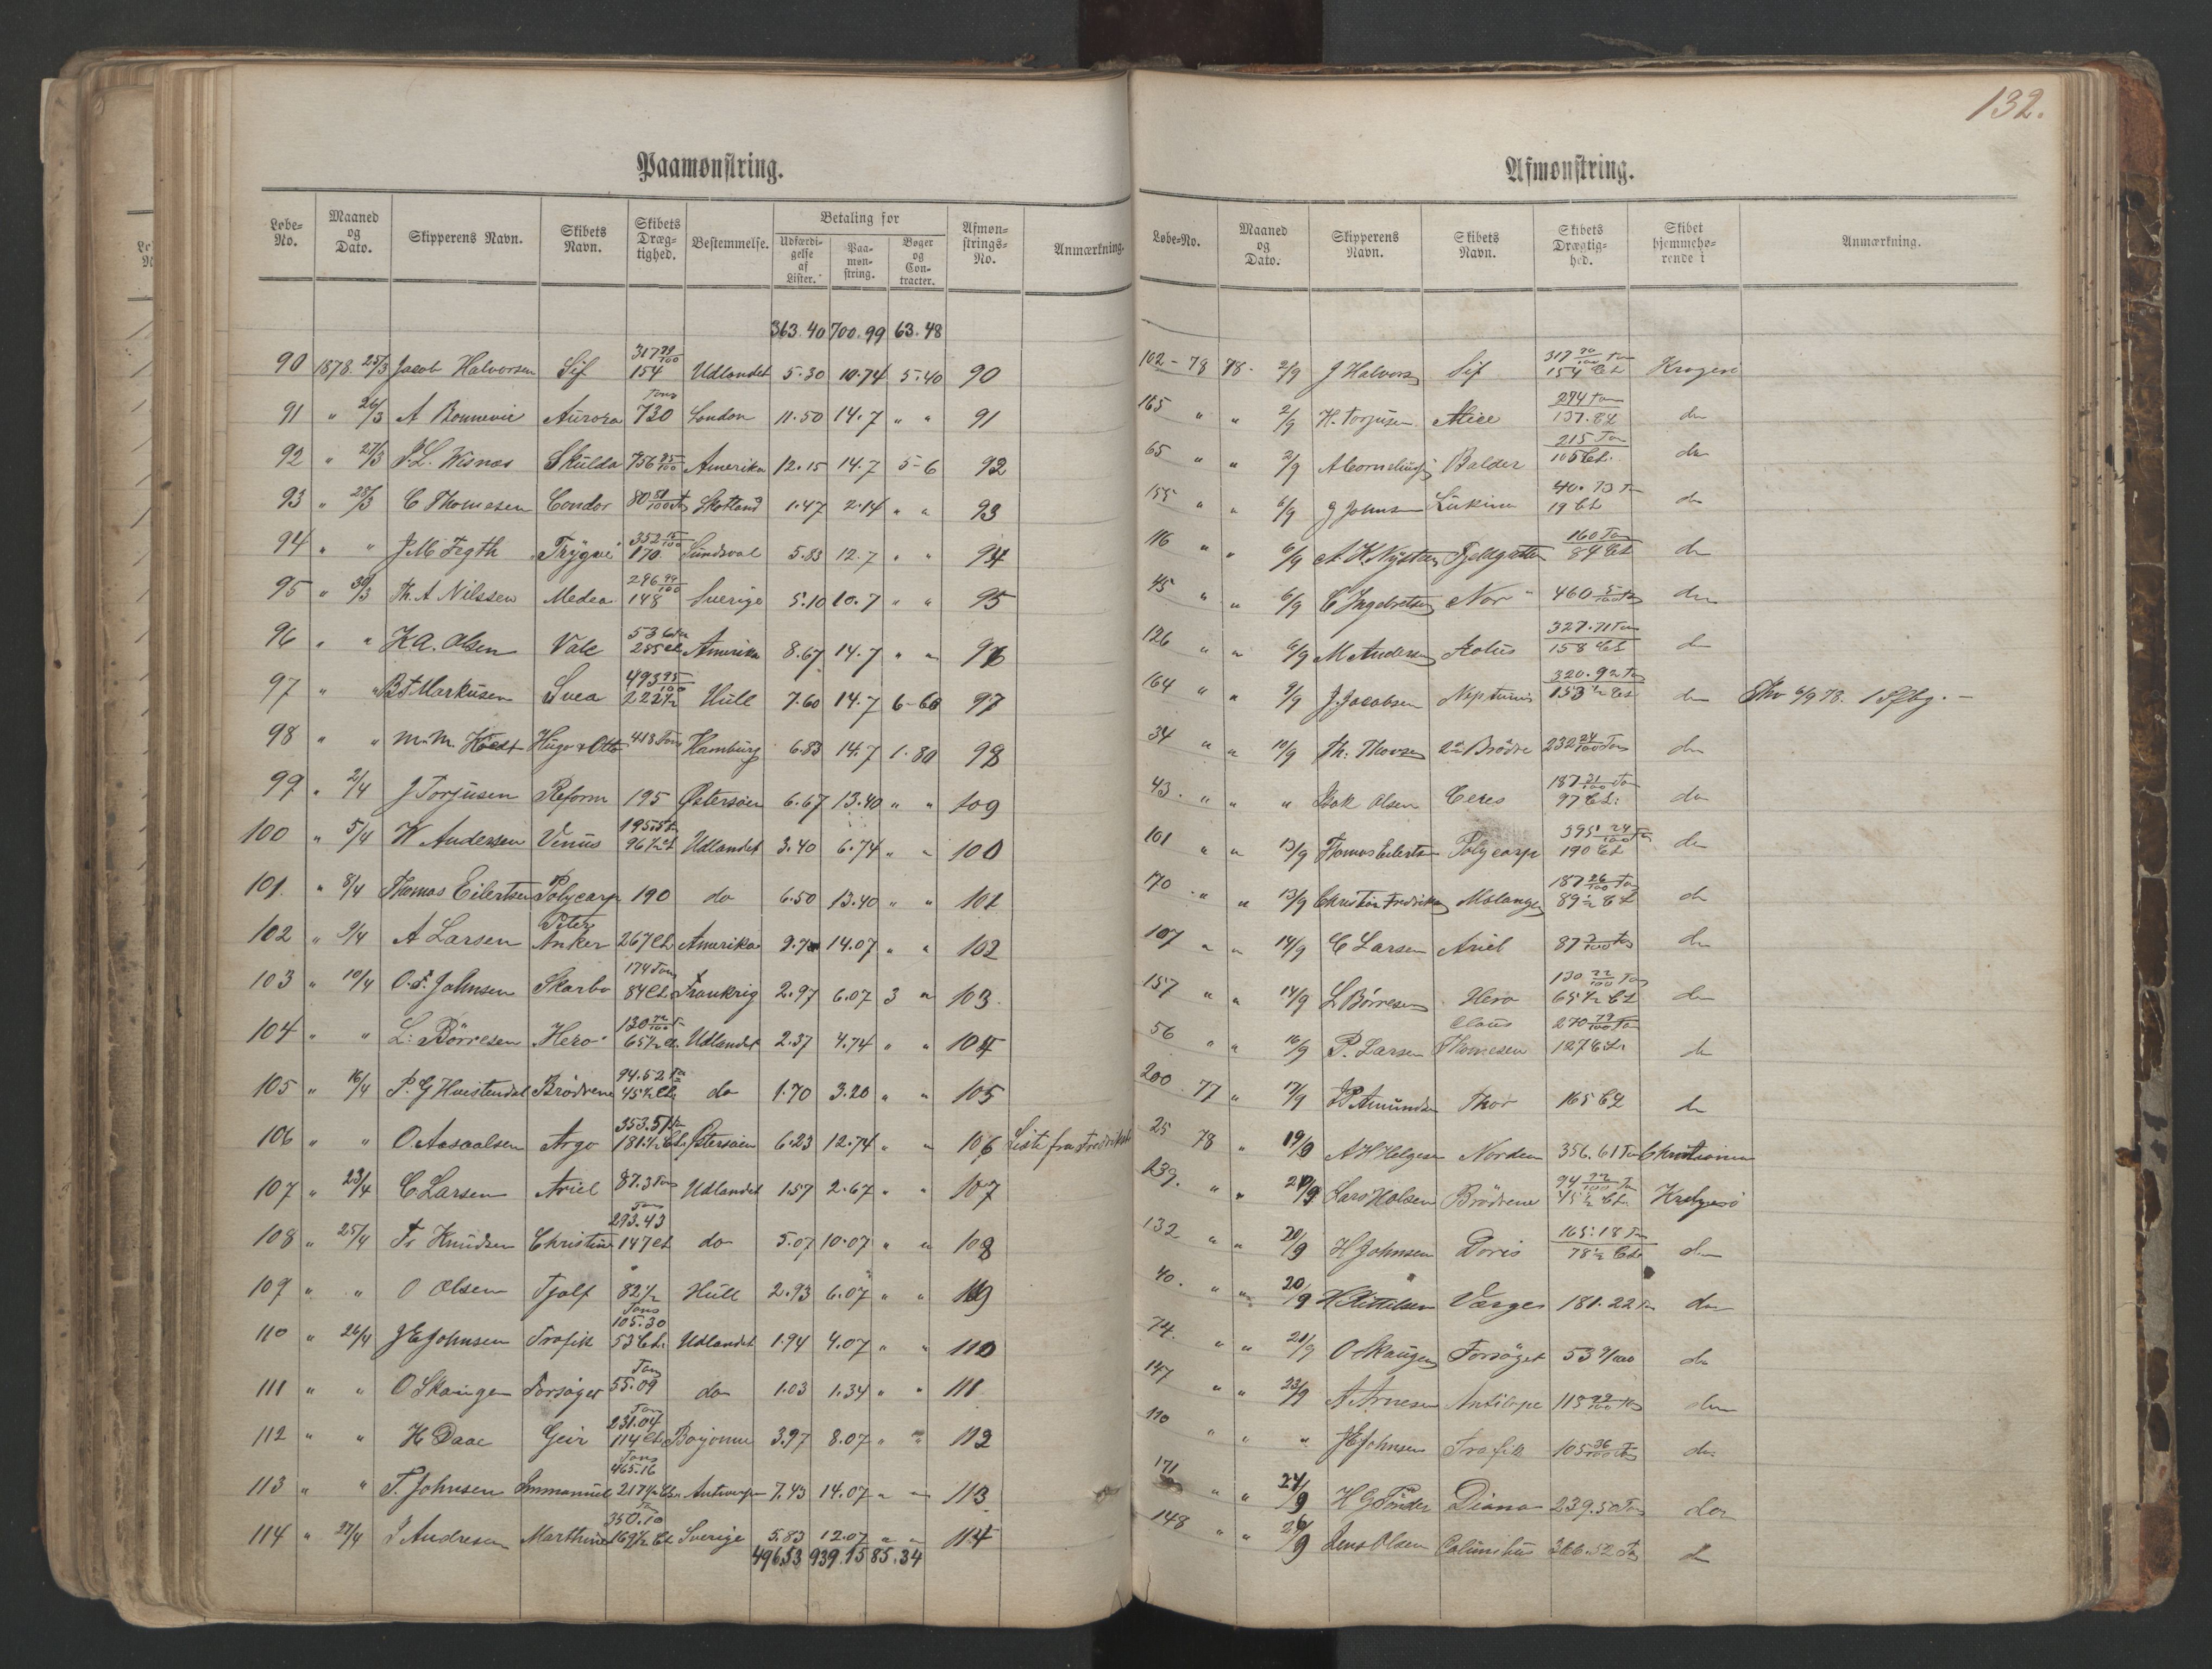 132.
Paamønstring.
Løbe-No. Maaned og Dato. Skipperens Navn. Skibets Navn. Skibets Dræg-tighed. Bestemmelse. Betaling for Udfærdi-gelse af Lister. Paa-møn-string. Bøger og Con-tracter. Afmøn-strings-No. Anmærkning.
363.40 700.99 63.48
90 1878. 25/3 Jacob Halvorsen Sif 317 90/100 154 Udlandet 5.30 10.74 5.40 90
91 " 26/3 A Bonnevie Aurora Tons 730 London 11.50 14.7 " " 91
92 " 27/3 Wisnæs Skulda 756 25/100 Amerika 12.15 14.7 5-6 92
93 " 28/3 C Thomesen Condor 80 Skotland 1.47 2.14 " " 93
94 " " J M Trygve 352 170 Sundsval 5.83 12.7 " " 94
95 " 30/3 Th. A Nilssen Medea 296 99/100 148 Sverige 5.10 10.7 " " 95
96 " " K A. Olsen Vale 536 Amerika 8.67 14.7 " " 96
97 " " Markusen Svea 493 95/100 222 1/2 Hull 7.60 14.7 6-60 97
98 " " M. M. Hugo & Otto 418 Tons Hamburg 6.83 14.7 1.80 98
99 " 2/4 J Torjusen Reform 195 Østersøen 6.67 13.40 " " 109
100 " 5/4 W Andersen Venus 96 1/2 Udlandet 3.40 6.74 " " 100
101. " 8/4 Thomas Eilertsen Polycarp 190 do 6.50 13.40 " " 101
102 " 9/4 A Larsen Peter Anker 267 Cl. Amerika 14.07 " " 102
103 " 10/4 Johnsen Skarbo 174 Tons 84 Cl. Frankrig 2.97 6.07 3 " 103.
104 " " L: Börresen "Hero" 130 65 1/2 Cl. Udlandet 2.37 4.74 " " 104
105 " 16/4 P. G Brödrene 94.52 45 1/2 Cl. do 1.70 3.20 " " 105
106 " " O Aasoalsen Argo 353.51 181 1/2 Cl. Østersøen 6.23 12.74 " " 106 Liste fra
107 " 23/4 C Larsen Ariel 87.3 Tons Udlandet 1.57 2.67 " " 107
108 " 25/4 Fr Knudsen Christine Tons 293.43 147 Cl. do 5.07 10.07 " " 108
109 " " O Olsen Tjalf 82 1/2 Hull 2.93 6.07 " " 109
110 " 26/4 J E Johnsen Trafik Tons 105.30 53 Cl. Udlandet 1.94 4.07 " " 110
111 " " O Skougen Forsöget Tons 55.09 do 1.03 1.34 " " 111
112 " " H Daae Geir Tons 231.04 114 Cl. Bayonne 3.97 8.07 " " 112
113 " " T. Johnsen Immanuel Tons 465.16 217 1/2 Antwerpen 7.43 14.07 " " 113
114 " 27/4 J Andresen Marthine 350.10 169 1/2 Cl. Sverige 5.83 12.07 " " 114
496.53 939.15 85.34
Afmønstring.
Løbe-No. Maaned og Dato. Skipperens Navn. Skibets Navn. Skibets Drægtig-hed. Skibet hjemmehø-rende i Anmærkning.
102-78 78. 2/9 J Halvors Sif 317 90/100 Ton 154 Cl. Kragerö
165 " " 2/9 H. Torjusen Alice 294 Tons 137.84 do
65 " " 2/9 A Cornelius Balder 215 Ton 105 Cl. do
155 " " 6/9 J Johnsen 40.73 Ton 19 Cl do
116 " " 6/9 A. K. 160 Ton 84 Cl do
45 " " 6/9 C Ingebretsen Nor 460 do
126 " " 6/9 M Andersen Æolus 327.71 Ton 158 Cl do
164 " " 9/9 J. Jacobsen Neptunus 320.92 Ton 153 1/2 Cl do 6/9 78.
34 " " 10/9 Th: Brödre 232 24/100 Tons do
43. " " " Isak Olsen Ceres 187 31/100 Ton 97 Cl. do
101 " " 13/9 Thomas Eilertsen Polycarp 395 24/100 Ton 190 Cl do
170 " " 13/9 Christian Fredriksen 187 26/100 Ton 89 1/2 Cl do
107 " " 14/9 C Larsen Ariel 87 3/100 Tons do
157 " " 14/9 L Börresen Hero 130 22/100 Ton 65 1/2 Cl do
56 " " 16/9 P. Larsen Claus Thomesen 270 79/100 Ton 127 Cl. do
200 77 " 17/9 Amundsen Thor 165 Cl do
25 78 " 19/9 A H Helgesen Norden 356.61 Ton Christiania
139. " " 20/9 Lars Holsen Brödrene 94 45 1/2 Cl. Kragerö
132 " " 20/9 H Johnsen Doris 165:18 Ton 78 1/2 Cl. do
40. " " 20/9 H Kittelsen Varges 181.22 Ton do
74. " " 21/9 O Skougen Forsöget 53 do
147 " " 23/9 A Arnesen Antilope 113 92/100 Tons do
110 " " " J E Johnsen Trafik 105 36/100 Ton do
171 " " 24/9 H G Tönder Diana 239.50 Ton do
148 " " 26/9 Jens Olsen Columbus 366.52 Ton do